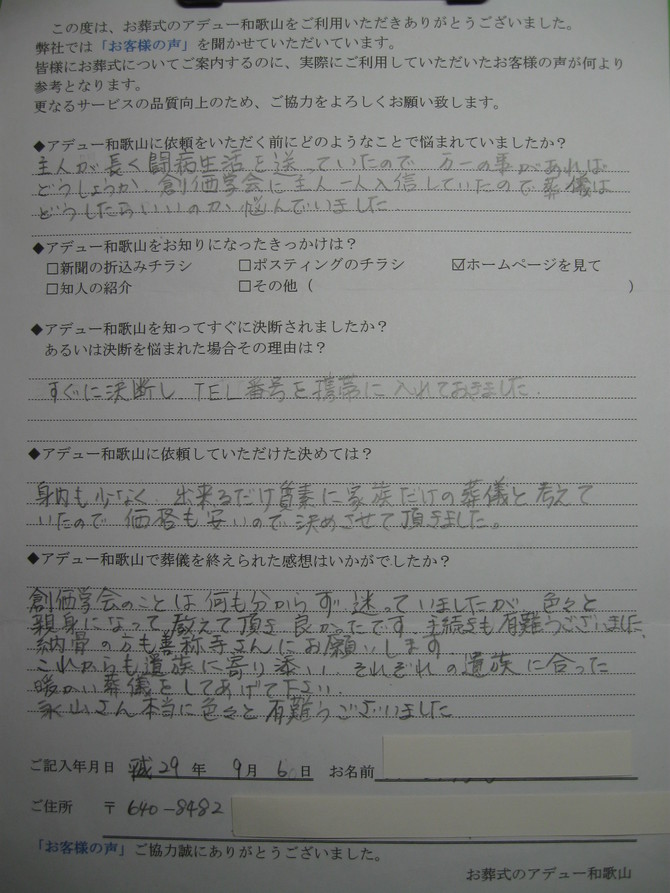 この度は、お葬式のアデュー和歌山をご利用いただきありがとうございました。
弊社では「お客様の声」を聞かせていただいています。
皆様にお葬式についてご案内するのに、実際にご利用していただいたお客様の声が何より
参考となります。
更なるサービスの品質向上のため、ご協力をよろしくお願い致します。
◆アデュー和歌山に依頼をいただく前にどのようなことで悩まれていましたか?
主人が長く闘病生活を送っていたので 万一の事があれば
どうしょうか、創価学会に主人一人入信していたので葬儀は
どうしたらいいのか悩んでいました
◆アデュー和歌山をお知りになったきっかけは?
□新聞の折込みチラシ □ポスティングのチラシ ☑ホームページを見て
□知人の紹介 □その他( )
◆アデュー和歌山を知ってすぐに決断されましたか?
あるいは決断を悩まれた場合その理由は?
すぐに決断し TEL番号を携帯に入れておきました.
◆アデュー和歌山に依頼していただけた決めては?
身内も少なく、出来るだけ質素に家族だけの葬儀と考えて
いたので 価格も安いので決めさせて頂きました。
◆アデュー和歌山で葬儀を終えられた感想はいかがでしたか?
創価学会のことは何も分からず 迷っていましたが 色々と
親身になって教えて頂き良かったです 手続きも有難うございました、
納骨の方も善称寺さんにお願いします
これからも遺族に寄り添い それぞれの遺族に合った
暖かい葬儀としてあげて下さい.
永山さん本当に色々と有難うございました
ご記入年月日 平成29年 9月 6日 お名前
ご住所 〒640-8482
「お客様の声」ご協力誠にありがとうございました。
お葬式のアデュー和歌山